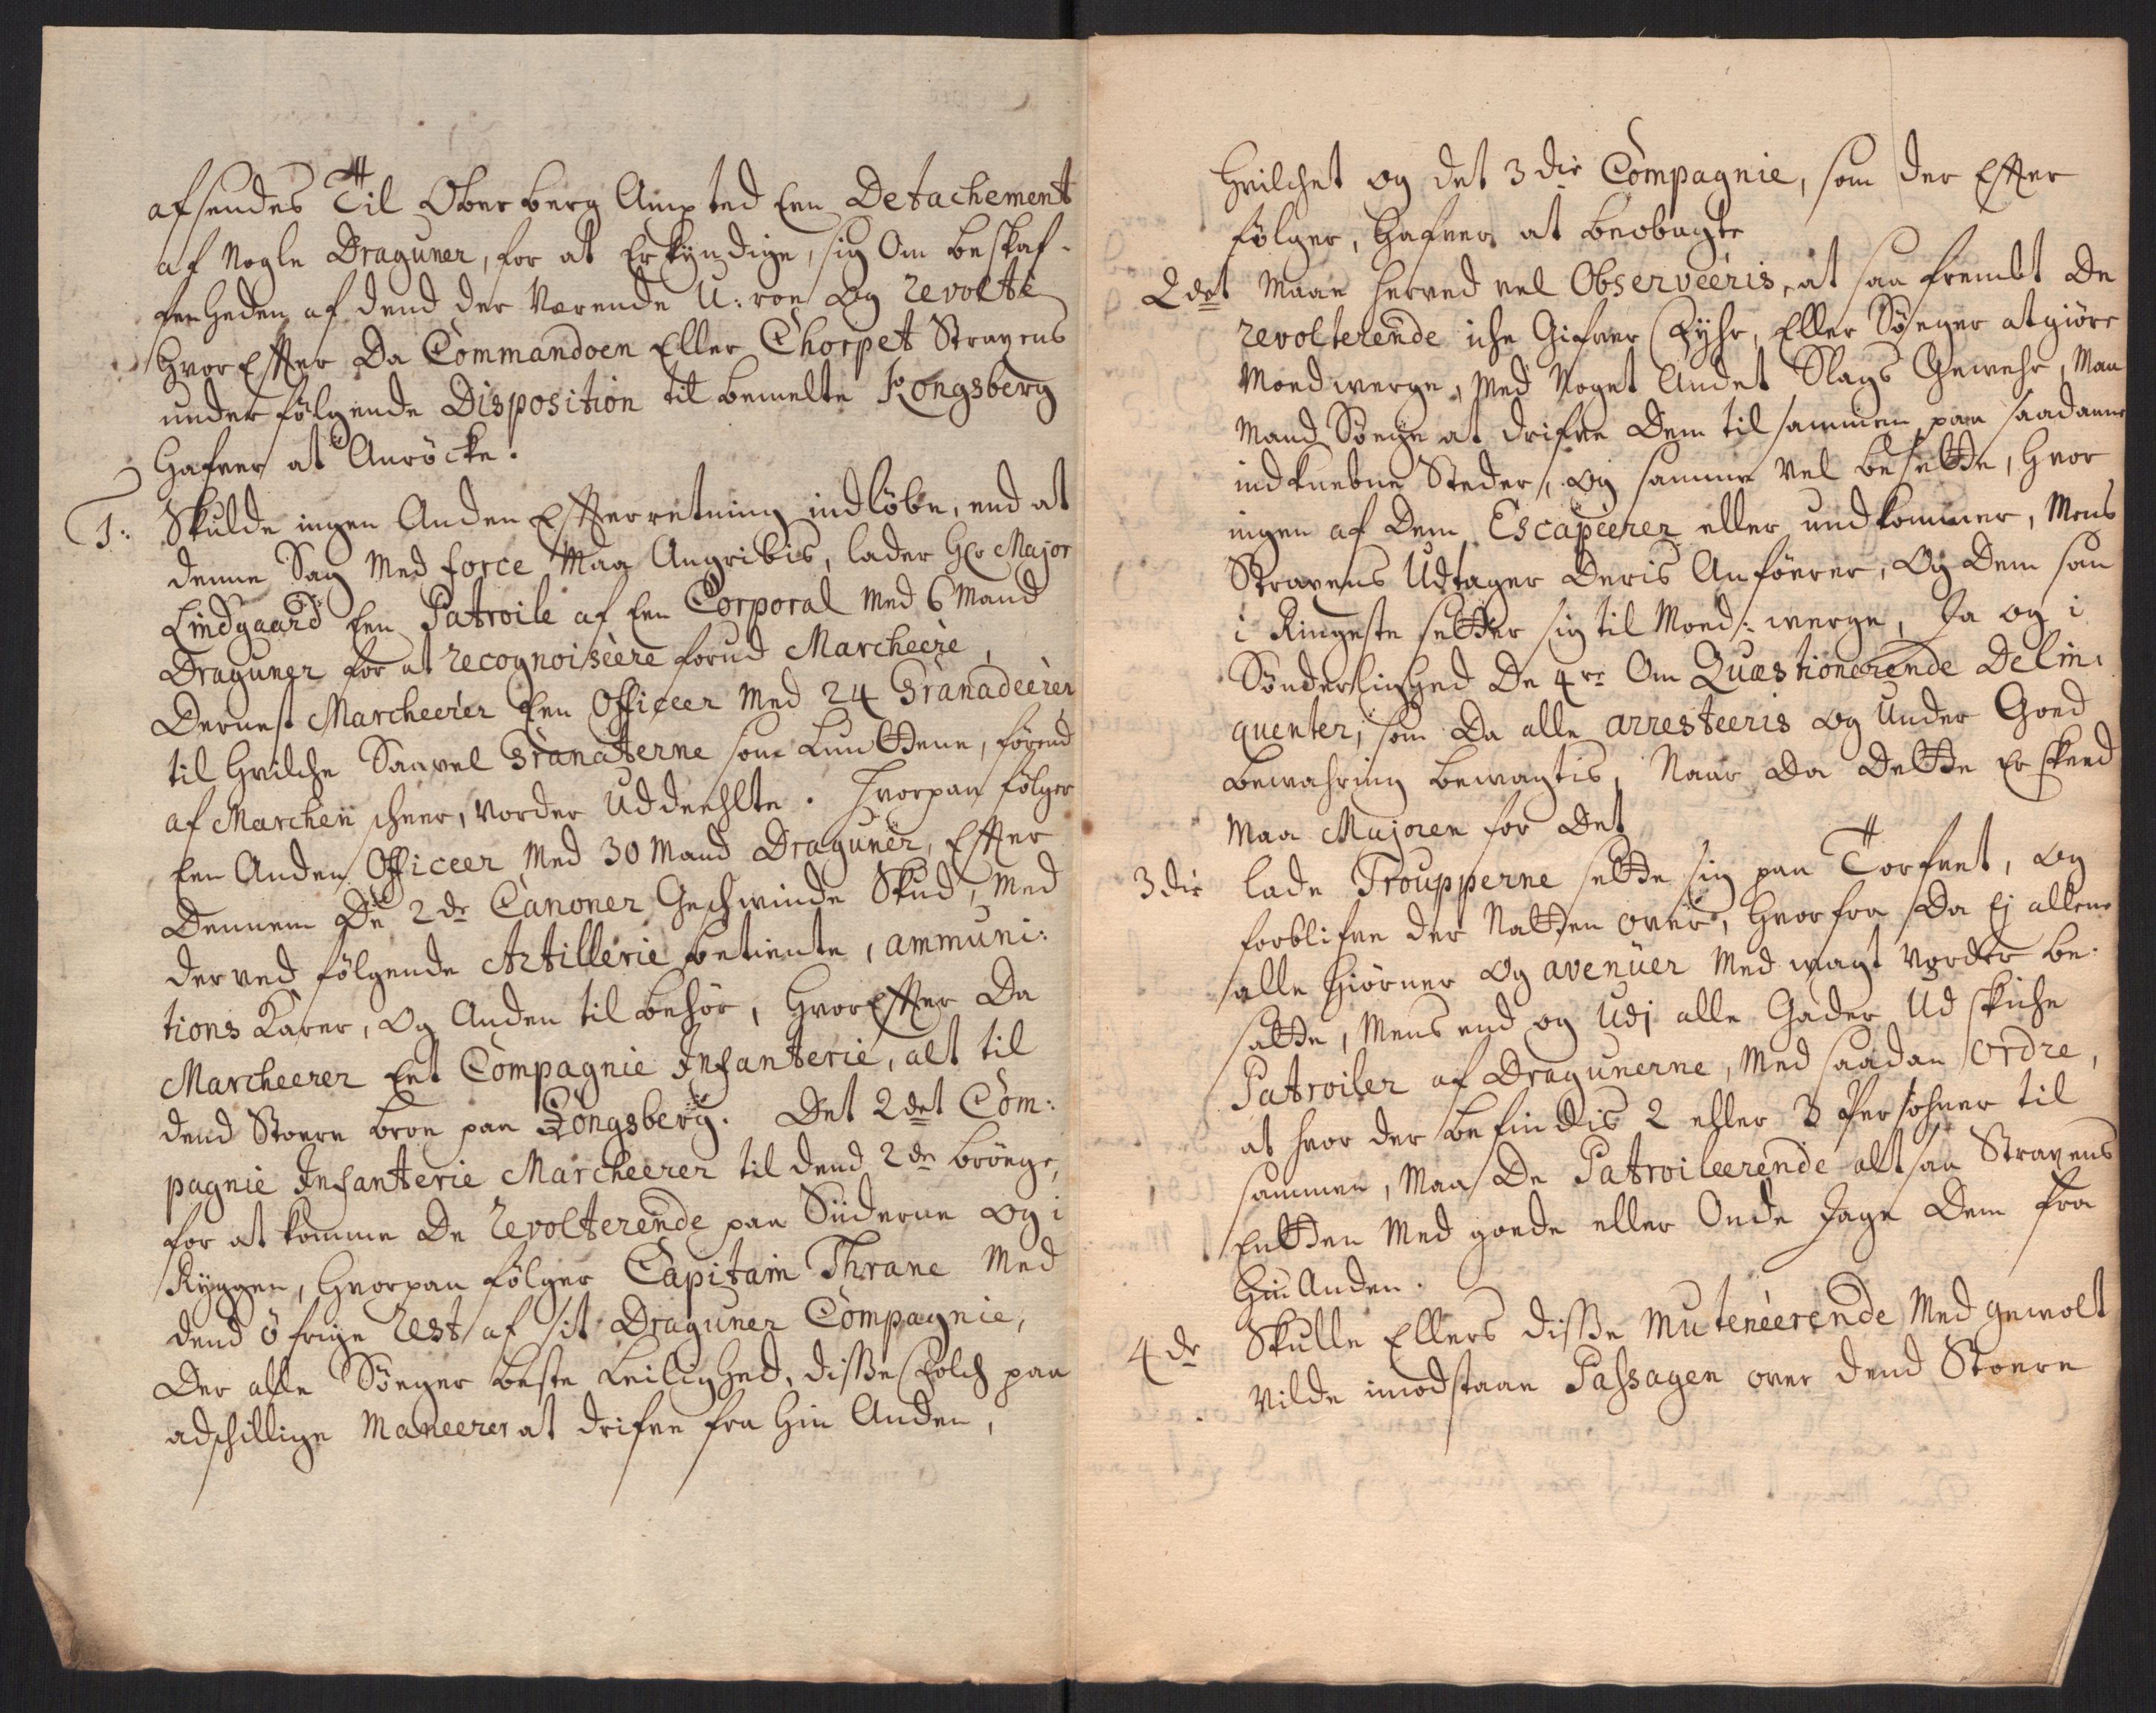 afsendes Til Ober berg Ampted Een Detachement
af Nogle Draguner, for at Erkyndige, sig Om beskaf-
fenheden af dend der Værende U: roe Og revolte
Hvor Effter Da Commandoen Eller Chorpet Straxens
under følgende Disposition til bemelte Kongsberg
Hafver at Anröcke.
1: Skulde ingen Anden Effterretning indlöbe, end at
denne Sag Med force Maa Angribis, lader Hr Major
Lindgaard Een Patroile af Een Corporal Med 6 Mand
Draguner for at recognoiseere forud Marcheere,
Dernest Marcheerer Een Officeer Med 24 Granadeerer
til Hvilche Saavel Granaterne som Luntterne, førend
af Marchen scheer, Vorder Uddeehlte. Hvorpaa følger
Een Anden Officeer Med 30 Mand Draguner, Effter
Dennem De 2de Canoner Geschwinde Skud, Med
der ved følgende Artillerie betiente, ammuni:
tions Karer, Og Anden til behör, Hvor Effter Da
Marcheerer Eet Compagnie Infanterie, alt til
dend Stoere broe paa Kongsberg. Det 2det Com:
pagnie Infanterie Marcheerer til dend 2den bröege,
for at komme De revolterende paa Siiderne Og i
Ryggen, Hvorpaa følger Capitain Thrane Med
dend öfrige rest af sit Draguner Compagnie,
Der alle Söeger beste Leilighed, disse Folch paa
adschillige Maneerer at drifve fra Hin Anden,
Hvilchet og det 3die Compagnie, som der Effter
følger, Hafver at beobagte
2det Maae herved vel Observeeris, at saa fremt De
revolterende iche Gifver Fyhr, Eller Söeger at giöre
Moedwerge, Med Noget Andet Slags Gewehr, Maa
Mand Söege at drifve Dem til sammen paa saadanne
indknebne Steder, og samme Vel besette, Hvor
ingen af Dem Escapeerer eller undkommer, Mens
Straxens Udtager Deris Anföerer, Og Dem som
i Ringeste setter sig til Moed: werge, Ja og i
Sønderlinghed De 4re Om Quæstionerende Delin:
quenter, som Da alle arresteeris og Under Goed
bewahring bewagtis, Naar Da Dette Er skeed
Maa Majoren for Det
3die lade Troupperne sette sig paa Torfvet, og
forblifve der Natten over, Hvorfra Da Ej allene
alle Hiörner Og avenüer Med wagt Vorder be:
satte, Mens end og Udi alle Gader Ud skiche
Patroiler af Dragunerne, Med saadan Ordre,
at hvor der befindis 2 eller 3 Persohner til
sammen, Maa De Patroileerende alt saa Straxens
Entten Med goede eller Onde Jage Dem fra
Hin Anden.
4de Skulle Ellers disse Muteneerende Med gewolt
Vilde imodstaae Passagen over dend Stoere